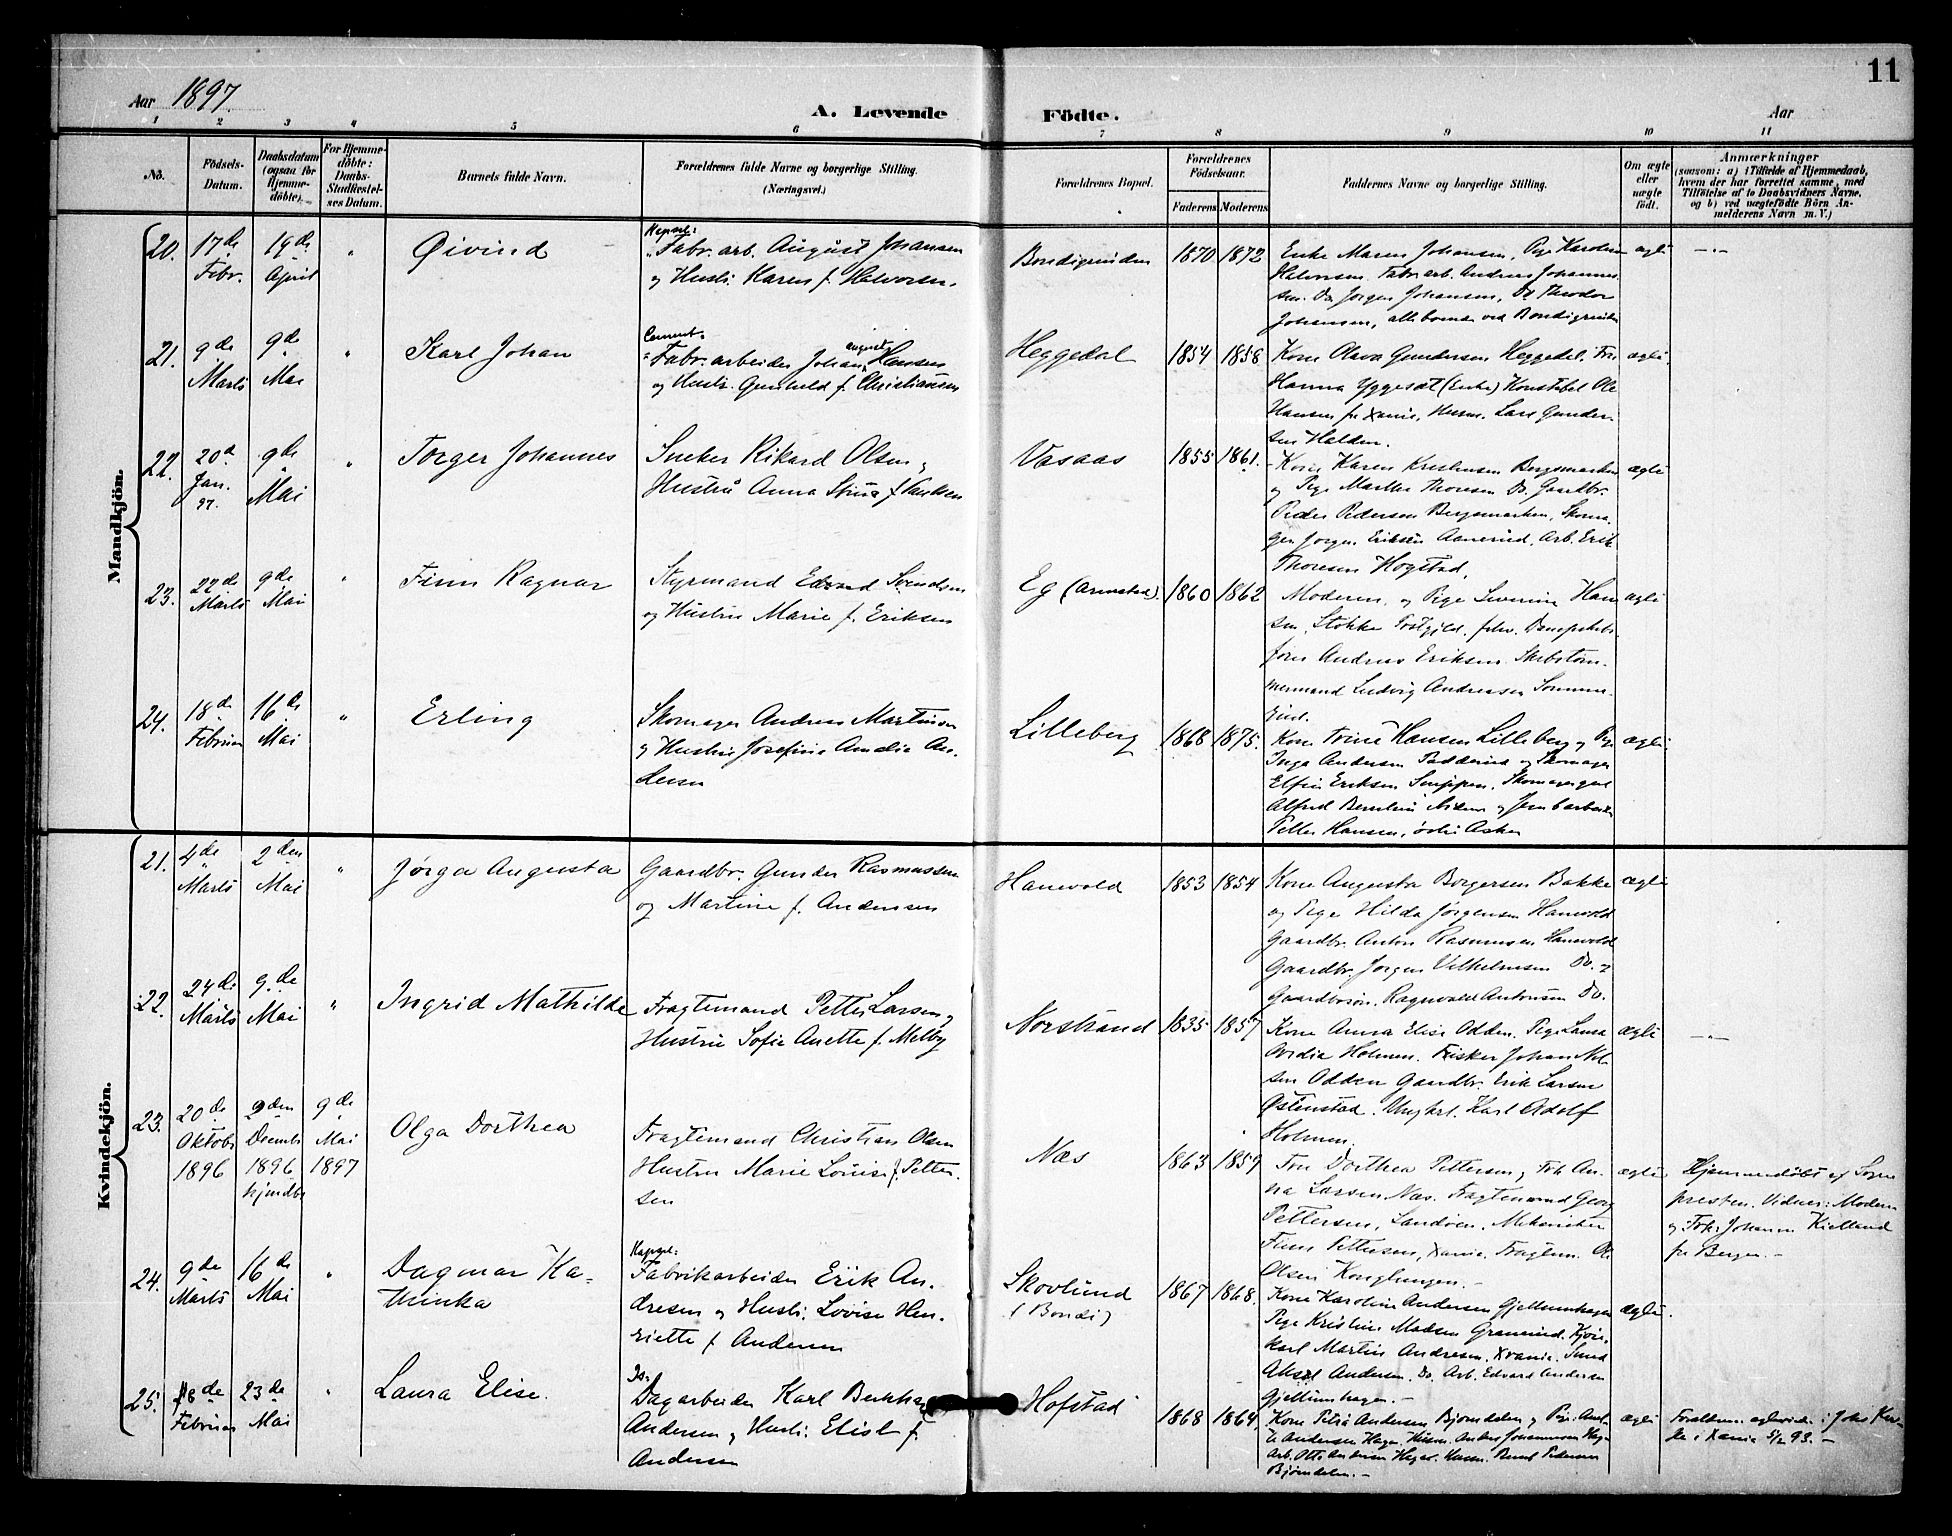 11
Aar 1897.
A. Levende Födte.
Aar
1 2 3 4 5 6 7 8 9 10 11
No.
Födsels-
Datum.
Daabsdatum
(ogsaa for
Hjemme-
döbte).
For Hjemme-
döbte:
Daabs-
Stadfæstel-
ses Datum.
Barnets fulde Navn.
Forældrenes fulde Navne og borgerlige Stilling.
(Næringsvei.)
Forældrenes Bopæl.
Forældrenes
Födselsaar.
Faderens Moderens
Faddernes Navne og borgerlige Stilling.
Om ægte
eller
uægte
födt.
Anmærkninger
(saasom: a) i Tilfælde af Hjemmedaab,
hvem der har forrettet samme, med
Tilföielse af to Daabsvidners Navne,
og b) ved uægtefödte Börn An-
melderens Navn m. V.)
Mandkjön.
20.
17de
Febr.
19de
April
"
Øivind
Fabr. arb. August Johansen
og Hustr. Karen f. Halvorsen.
Bondigrinden
1870 1872
Enke Maren Johansen, Pige Karoline
Halvorsen. Fabr. arb. Andreas Johannes-
sen. Do Jørgen Johansen, Do Theodor
Johansen, alle boende ved Bondigrinden
ægte
— " —
21.
9de
Marts
9de
Mai
"
Karl Johan
Cement-
Fabr. arbeider Johan August Hansen
og Hustr. Gunhild f. Christiansen
Heggedal
1854 1858
Kone Olava Gundersen Heggedal. Fru
Hanna Yggesæt (Enke) Konstabel Ole
Hansen fr Xania, Husm. Lars Gunder-
sen Halden.
ægte
22.
20d
Jan.
97.
9de
Mai
"
Torger Johannes
Sneker Rikard Olsen og
Hustru Anna Stina f.
Vasaas
1855 1861.
Kone Karen Kristensen Bergsmarken
og Pige Marthe Thoresen Do. Gaardbr.
Peder Pedersen Bergsmarken, Skoma-
ger Jørgen Eriksen Aamerud, Arb. Erik
Thoresen Hogstad.
ægte
23.
22de
Marts
9de
Mai
"
Finn Ragnar
Styrmand Edvard Svendsen
og Hustru Marie f. Eriksen
Eg (Arnestad).
1860 1862
Moderen og Pige Severine Han-
sen, Stokke Prstgjeld. Dampskibs-
fører Andreas Eriksen. Skibstøm-
mermand Ludvig Andreasen
ægte
24.
18de
Februar
16de
Mai
"
Erling
Skomager Andreas Martinsen
og Hustru Josefine Amalia An-
dersen
Lilleberg
1868 1875.
Kone Trine Hansen Lilleberg og Pige
Inga Andersen Padderud og Skomager
Elfin Eriksen Skomagersvend
Alfred Berntsen og Jernbarbeider
Petter Hansen, Asker
ægte
Kvindekjön.
21.
4de
Marts
2den
Mai
"
Jørga Augusta
Gaardbr. Gunder Rasmussen
og Martine f. Andersen
Hanevold
1853 1854
Kone Augusta Borgersen Bakke
og Pige Hilda Jørgensen Hanevold
Gaardbr. Anton Rasmussen Hanevold
Gaardbr. Jørgen Vilhelmsen Do. og
Gaardbrsøn. Ragnvald Antonsen Do.
ægte
22.
24de
Marts
9de
Mai
"
Ingrid Mathilde
Fragtemand Petter Larsen og
Hustru Sofie Anette f. Melby
Norstrand
1835 1857
Kone Anna Elise Odden. Pige Laura
Holmen. Fisker Johan Nil-
sen Odden Gaardbr. Erik Larsen
Østenstad. Ungkrl. Karl Adolf
Holmen.
ægte
— " —
23.
20de
Oktobr
1896
2den
Decembr
1896
hjmdbt
9de
Mai
1897
Olga Dorthea
Fragtemand Christian Olsen
Hustru Marie Lovise f. Petter-
sen
Næs
1863 1859
Fru Dorthea Pettersen og Frk. An-
na Larsen Næs. Fragtemand Georg
Pettersen, Landøen, Mekaniker
Finn Pettersen, Xania. Fragtem. Ole
Olsen Konglungen. —
ægte
Hjemmedøbt af Sogne-
presten. Vidner: Moderen
og Frk: Johanne Kielland
fr Bergen. —
24.
9de
Marts
16de
Mai
"
Dagmar Ka-
thinka
Fabrikarbeider Erik An-
dresen og Hustr: Lovise Hen-
riette f. Andersen
Skovlund
(Bondi)
1867 1868.
Kone Karoline Andersen Gjellumhagen
Pige Kristine Madsen Kjøre-
karl Martin Andresen, Xania. Smed
Aksel Andersen. Do. Arb. Edvard Andersen
Gjellumhagen. —
ægte.
25.
18de
Februar
23de
Mai
"
Laura Elise.
Dagarbeider Karl
Andersen og Hustr: Elise f.
Andersen
Hofstad
1868 1864
Kone Petra Andersen Bjørndalen og Pige
Andersen Hagen Husm. Anders Johannesen
Arb. Otto Andersen Husm. Bernt Pedersen
Bjørndalen. —
ægte
Forældrene ægteviede i Johs Kir-
ke i Xania 5/2 93. —